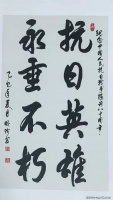 纪念中国人民抗日战争胜利八十周年
抗日英雄
永垂不朽
乙巳年夏月